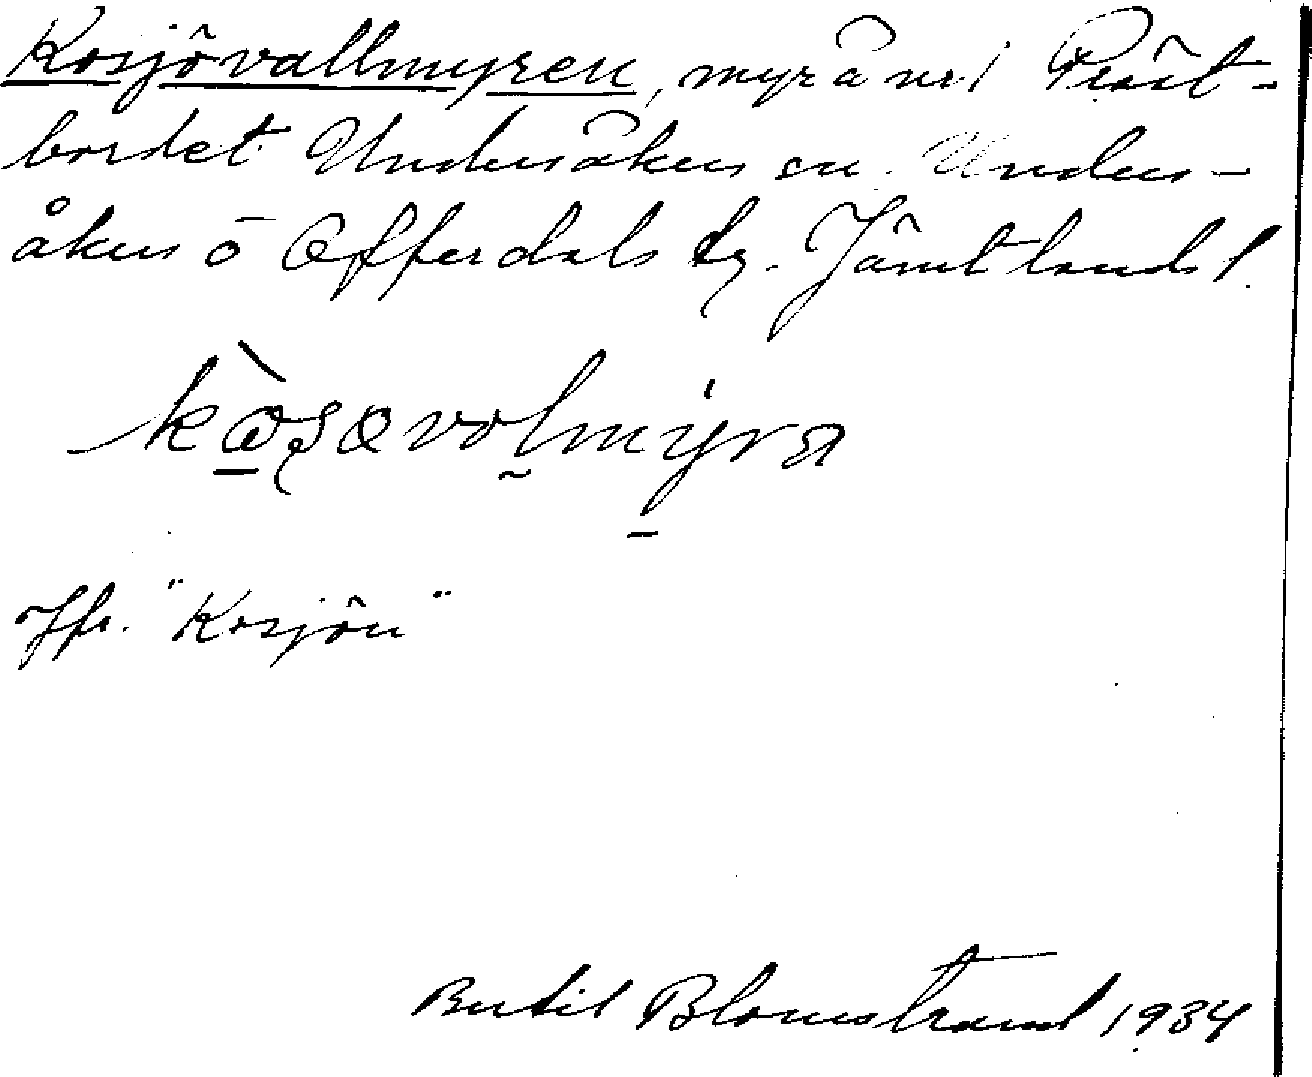 Kosjövallmyren, myr å nr 1 Präst-
bordet Undersåkers sn. Unders-
åkers o Offerdals tg. Jämtlands l.
Jfr. "Kosjön"
Bertil Blomstrand 1934